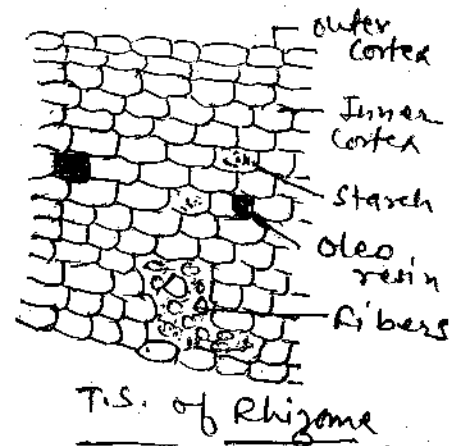 Outer
Cortex
Inner
Cortex
Starch
Oleo
resin
Fibers
T.S. of Rhizome